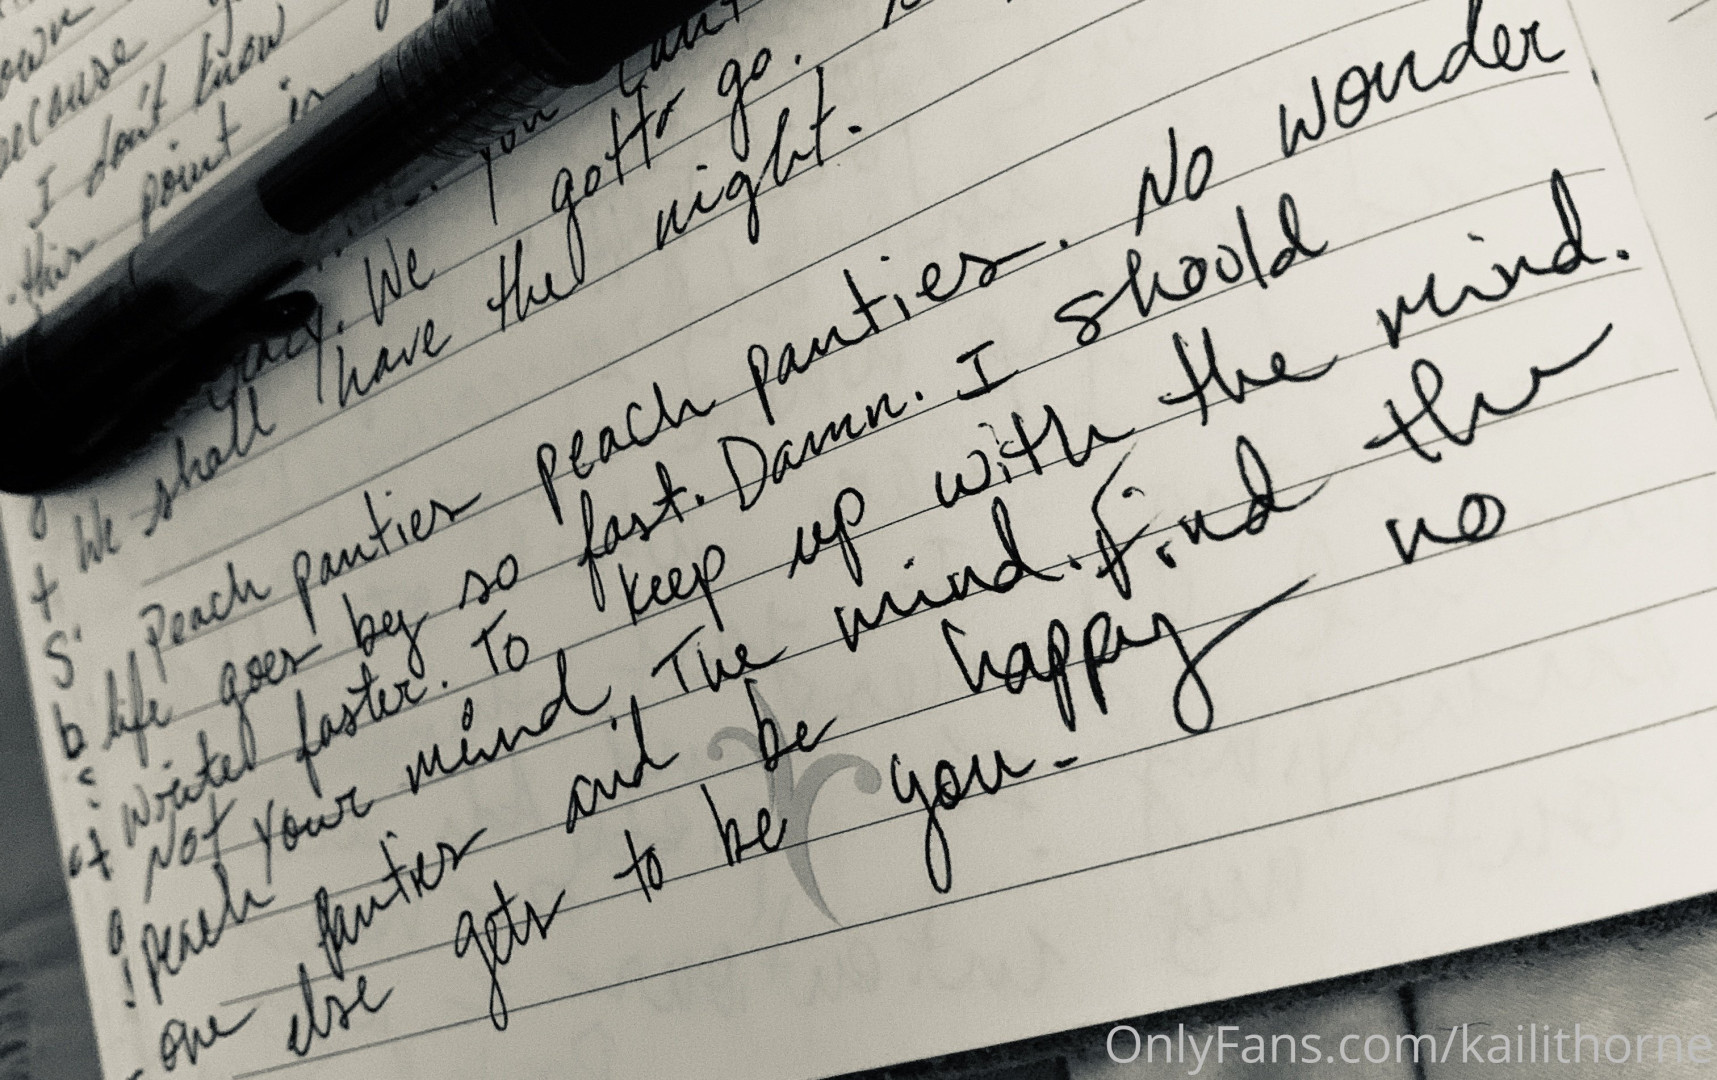 own
because
I don't know
this point is
you can't
We gotta go.
We shall have the night.
Peach panties peach panties. No wonder
life goes by so fast. Damn. I should
write faster. To keep up with the mind.
Not your mind. The mind. Find the
peach panties and be happy no
one else gets to be you.
OnlyFans.com/kailithorne